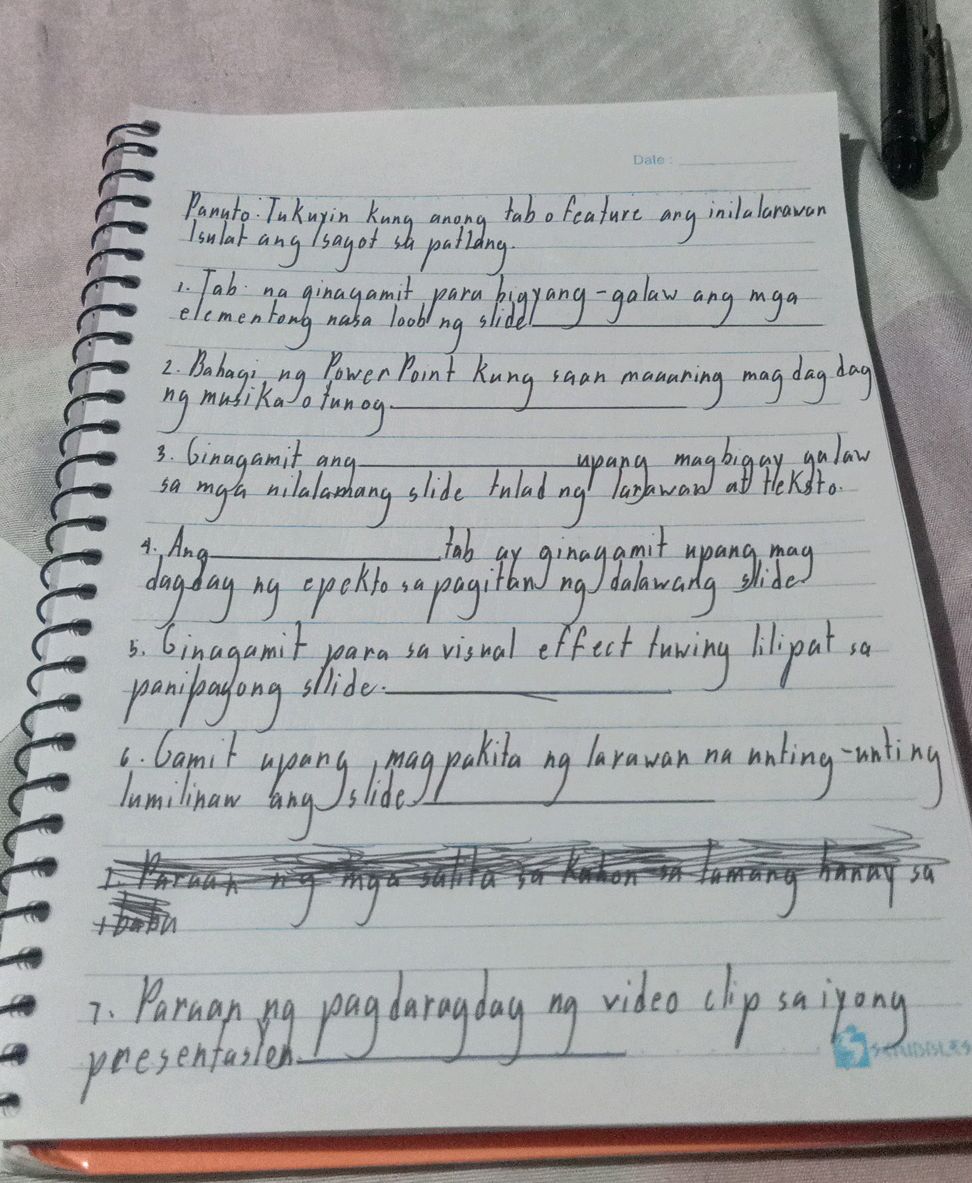 Date :
Panuto: Tukuyin kung anong tab o feature ang inilalarawan
Isulat ang Isagot sa patlang.
1. Tab na ginagamit para bigyang-galaw ang mga
elementong nasa loob ng slide
2. Bahagi ng PowerPoint kung saan maaaring mag dag dag
ng musika o tunog.
3. Ginagamit ang upang magbigay galaw
sa mga nilalamang slide tulad ng larawan at teksto.
4. Ang tab ay ginagamit upang mag
dagdag ng epekto sa pagitan ng dalawang slide
5. Ginagamit para sa visual effect tuwing lilipat sa
panipagong sllide.
6. Gamit upang magpakita ng larawan na unting-unting
lumilinaw ang slide
Paraan ng mga salita sa kahon sa tamang hanay sa
7. Paraan ng pagdaragdag ng video clip sa iyong
presentasion.
SCRIBBLES